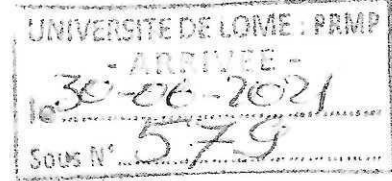 UNIVERSITE DE LOME : PRMP
- ARRIVEE -
le 30-06-2021
Sous N° 579